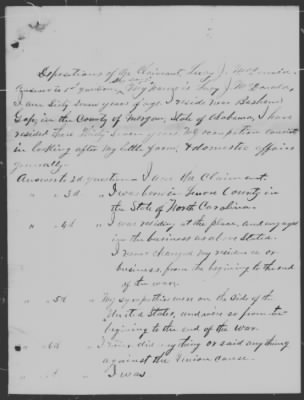 Depositions of the Claimant Levy
Answer to 1st question My name is Levy
I am Sixty Seven years of age. I reside near Basham
Gap, in the County of Morgan, State of Alabama, I have
resided here thirty Seven years My occupation consists
in looking after my little farm, & domestic affairs
generally
Answer to 2d question I am the Claimant
" " 3d " I was born in County in
the State of North Carolina
" " 4th " I was residing at the place, and engaged
in the business as above Stated.
I never changed my residence or
business, from the begining to the end
of the war.
" " 5th " My sympathies were on the side of the
United States, and were so from the
begining to the end of the war.
" " 6th " I never did anything or said anything
against the Union cause.
" " " I was